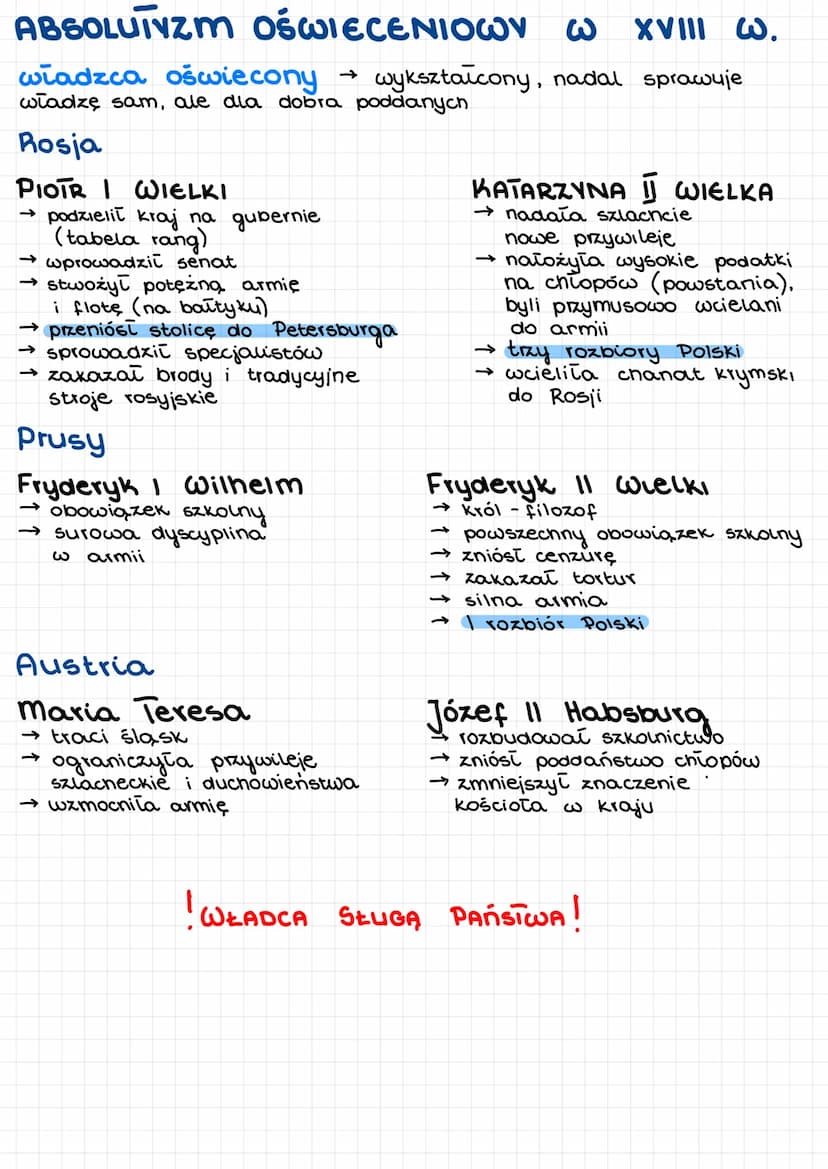 ABSOLUTYZM OŚWIECENIOWY W XVIII W.
władzca oświecony → wykształcony, nadal sprawuje
władzę sam, ale dla dobra poddanych
Rosja
PIOTR I WIELKI
→ podzielił kraj na gubernie
(tabela rang)
→ wprowadził senat
→ stwożył potężną armię
i flotę (na bałtyku)
→ przeniósł stolicę do Petersburga
→ sprowadził specjalistów
→ zakazał brody i tradycyjne
stroje rosyjskie
KATARZYNA II WIELKA
→ nadała szlachcie
nowe przywileje
→ nałożyła wysokie podatki
na chłopów (powstania),
byli przymusowo wcielani
do armii
→ trzy rozbiory Polski
→ wcieliła chanat krymski
do Rosji
Prusy
Fryderyk I Wilhelm
→ obowiązek szkolny
→ surowa dyscyplina
w armii
Fryderyk II Wielki
→ król - filozof
→ powszechny obowiązek szkolny
→ zniósł cenzurę
→ zakazał tortur
→ silna armia
→ I rozbiór Polski
Austria
Maria Teresa
→ traci śląsk
→ ograniczyła przywileje
szlacheckie i duchowieństwa
→ wzmocniła armię
Józef II Habsburg
→ rozbudował szkolnictwo
→ zniósł poddaństwo chłopów
→ zmniejszył znaczenie
kościoła w kraju
! WŁADCA SŁUGĄ PAŃSTWA !